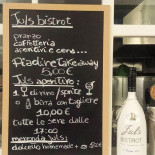 Juls bistrot
pranzo
caffetteria
aperitivi e cene...
Piadine take away
5,00€
Juls aperitivo:
1 drink / vino / spritz
o 1 birra con tagliere
10,00€
tutte le sere dalle
17:00
merenda Juls:
dolcetto homemade + 5,00€
Juls
BISTROT